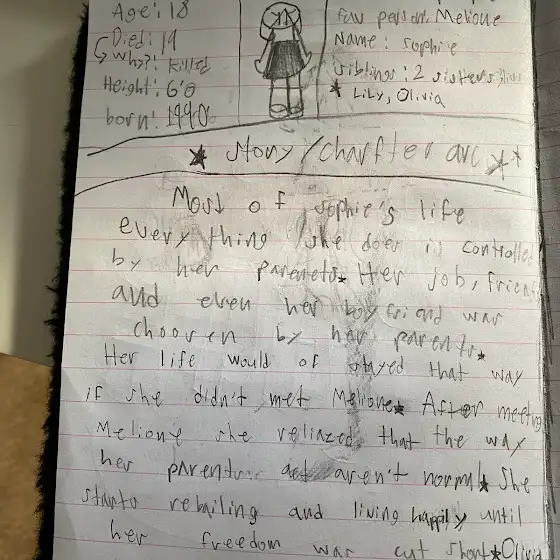 Age: 18
Died: 19
Why?: killed
Height: 6'0
born: 1990
fav person: Melione
Name: Sophie
Siblings: 2 sisters
* Lily, Olivia
* Story/charfter arc **
Most of Sophie's life
everything she does is controlled
by her parenets* Her job, friend
and even her boyfriend was
choosen by her parents*
Her life would of stayed that way
if she didn't met Melione* After meeting
Melione she reliazed that the way
her parents act aren't normal* She
starts rebailing and living happily until
her freedom was cut short* Olivia